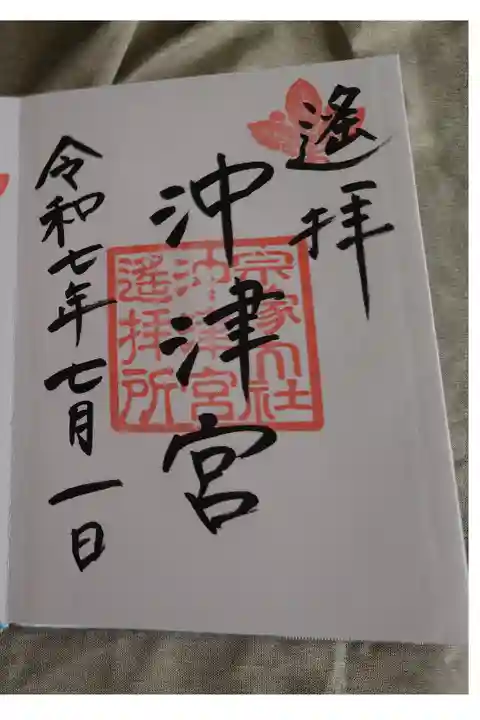 遙拝
沖津宮
令和七年七月一日
宗像大社
沖津宮
遙拝所